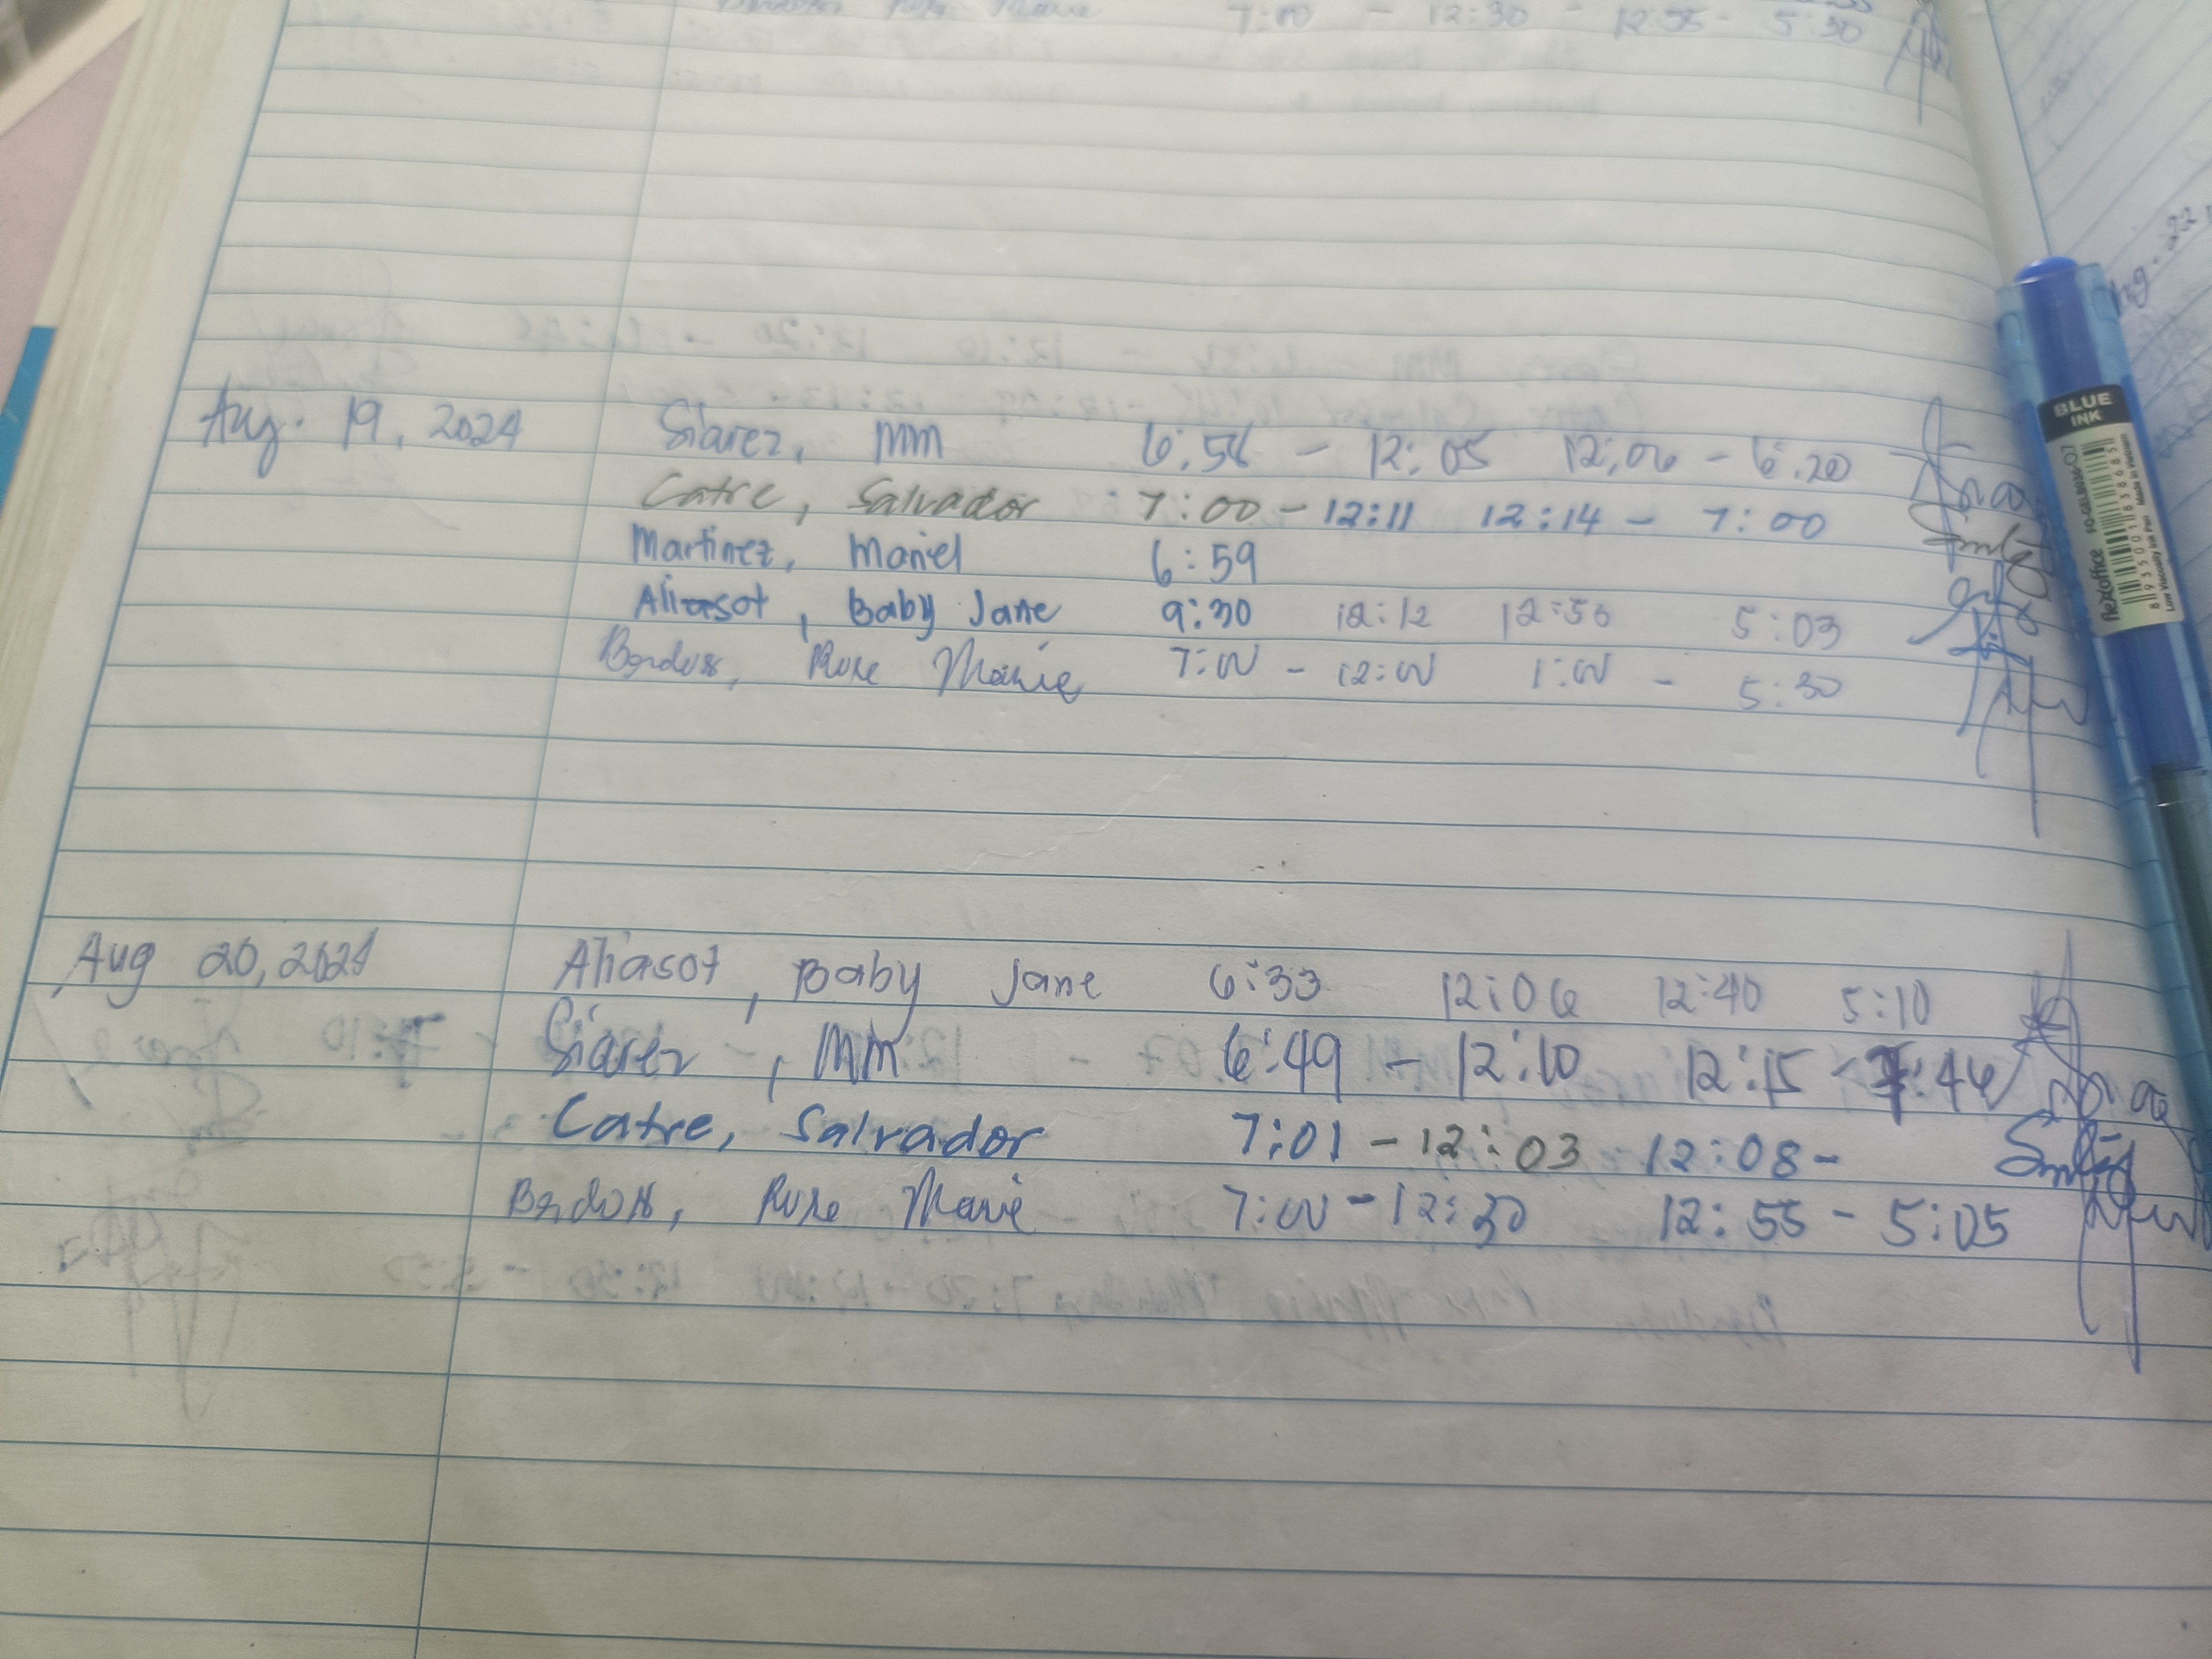 7:00 - 12:30 - 12:55 - 5:30
Aug. 19, 2024 Siarez, MM 6:56 - 12:05 12:06 - 6:20
Catre, Salvador 7:00 - 12:11 12:14 - 7:00
Martinez, Mariel 6:59
Aliasot, Baby Jane 9:30 12:12 12:56 5:03
Rose Marie 7:00 - 12:00 1:00 - 5:30
Aug 20, 2024 Aliasot, Baby Jane 6:33 12:06 12:40 5:10
Siarez, MM 6:49 - 12:10 12:15 - :46
Catre, Salvador 7:01 - 12:03 12:08 -
Rose Marie 7:00 - 12:30 12:55 - 5:05
BLUE
INK
flexoffice
FO-GELB036-07
8 935001 838685
Low Viscosity Ink Pen Made in Vietnam